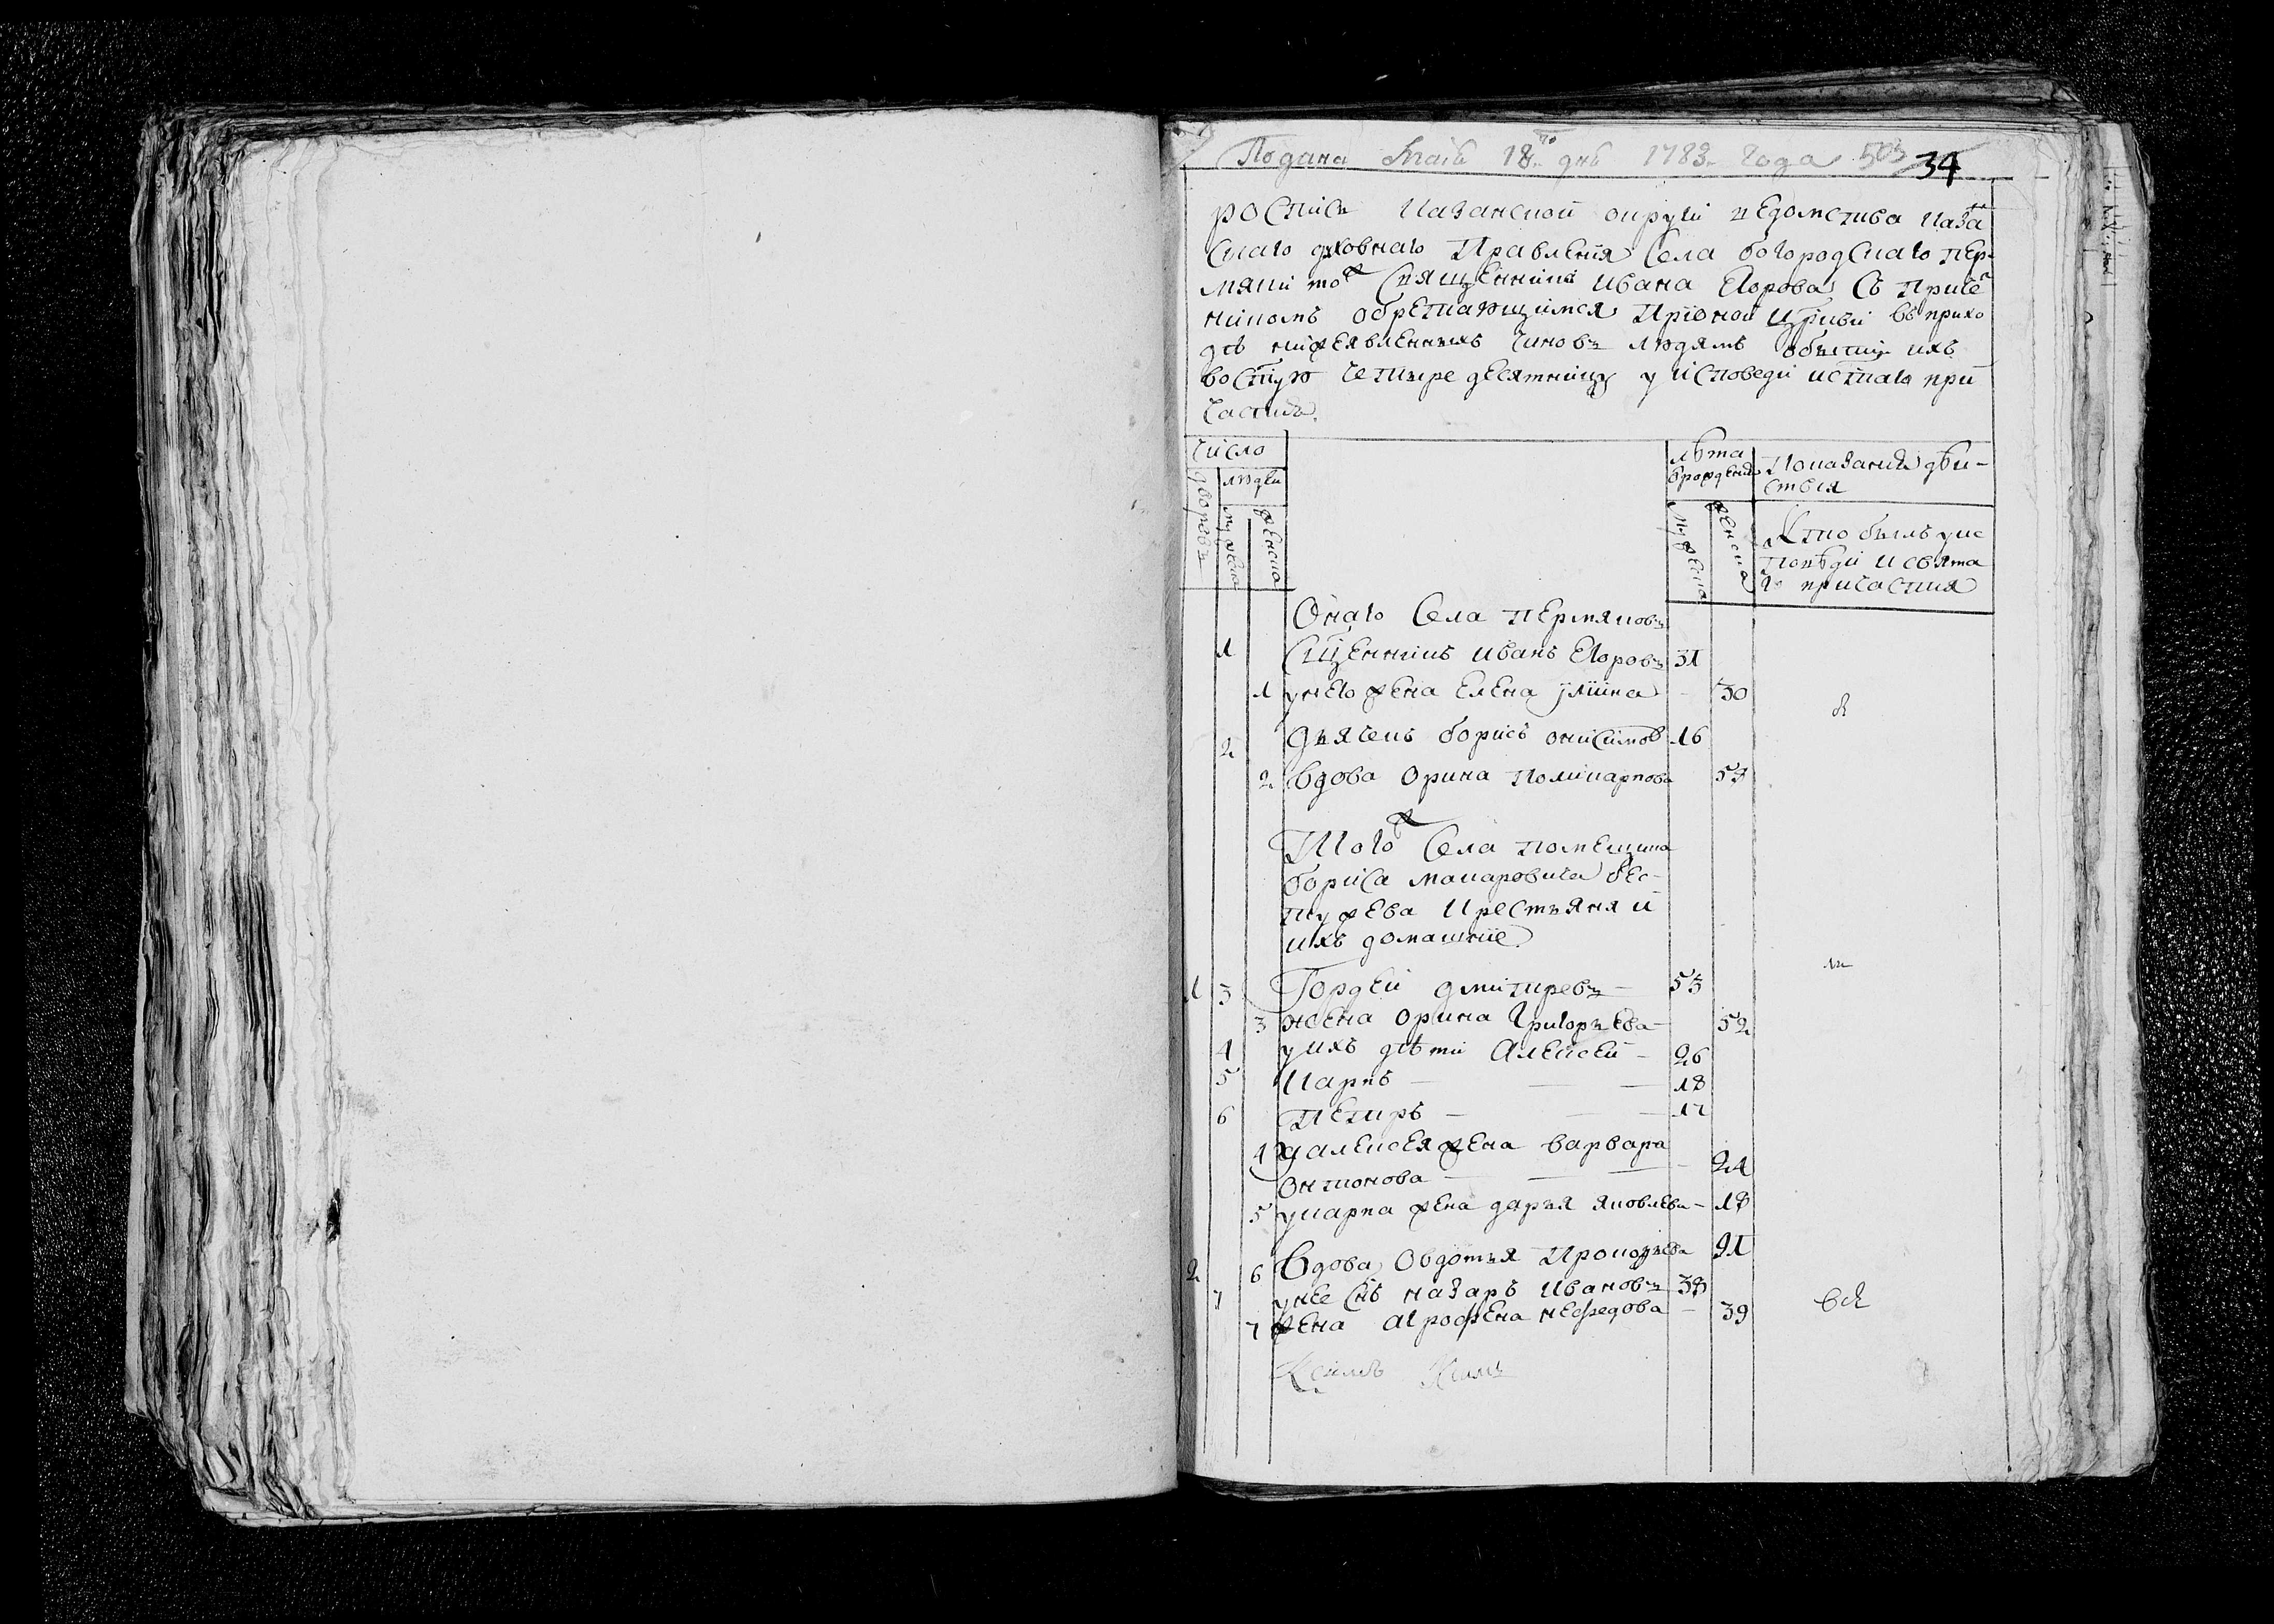 Подана Маія 18го дня 1783 года 503
34
роспись казанской округи ведомства каза
скаго духовнаго Правления Села богородскаго пер
мяки тож Священника ивана Егорова Съ приче
никомъ обретающимся прионой цркви въ прихо
дѣ нижеявленныхъ чиновъ людямъ обытии ихъ
восвтую четыредесятницу у исповеди истаго при
частия
число
лѣта
врождения
Показание дѣи-
ствия
дворовъ
людеи
мужеска
женска
мужеска
женска
Кто былъ уис
поведи и свята
го причастия
Онаго Села пермяковъ
1 Сщенникъ иванъ Егоровъ 31
1 унего жена Елена ілиина - 30
2 дьячекъ борисъ онисимовъ 16
2 вдова орина поликарпова
Того ж Села помещика
бориса макаровича бес-
тужева крестьяня и
ихъ домашние
1 3 Гордеи дмитревъ - 53
3 жена орина григорьева - 52
4 уихъ дѣти Алексеи - 26
5 карпъ - 18
6 петръ - 17
4 уалексея жена варвара
онтонова - 24
5 укарпа жена дарья яковлева - 18
2 6 вдова овдотья прокофьева 91
7 унее снъ назаръ ивановъ 38
7 жена агрофена нефедова - 39
всѣ